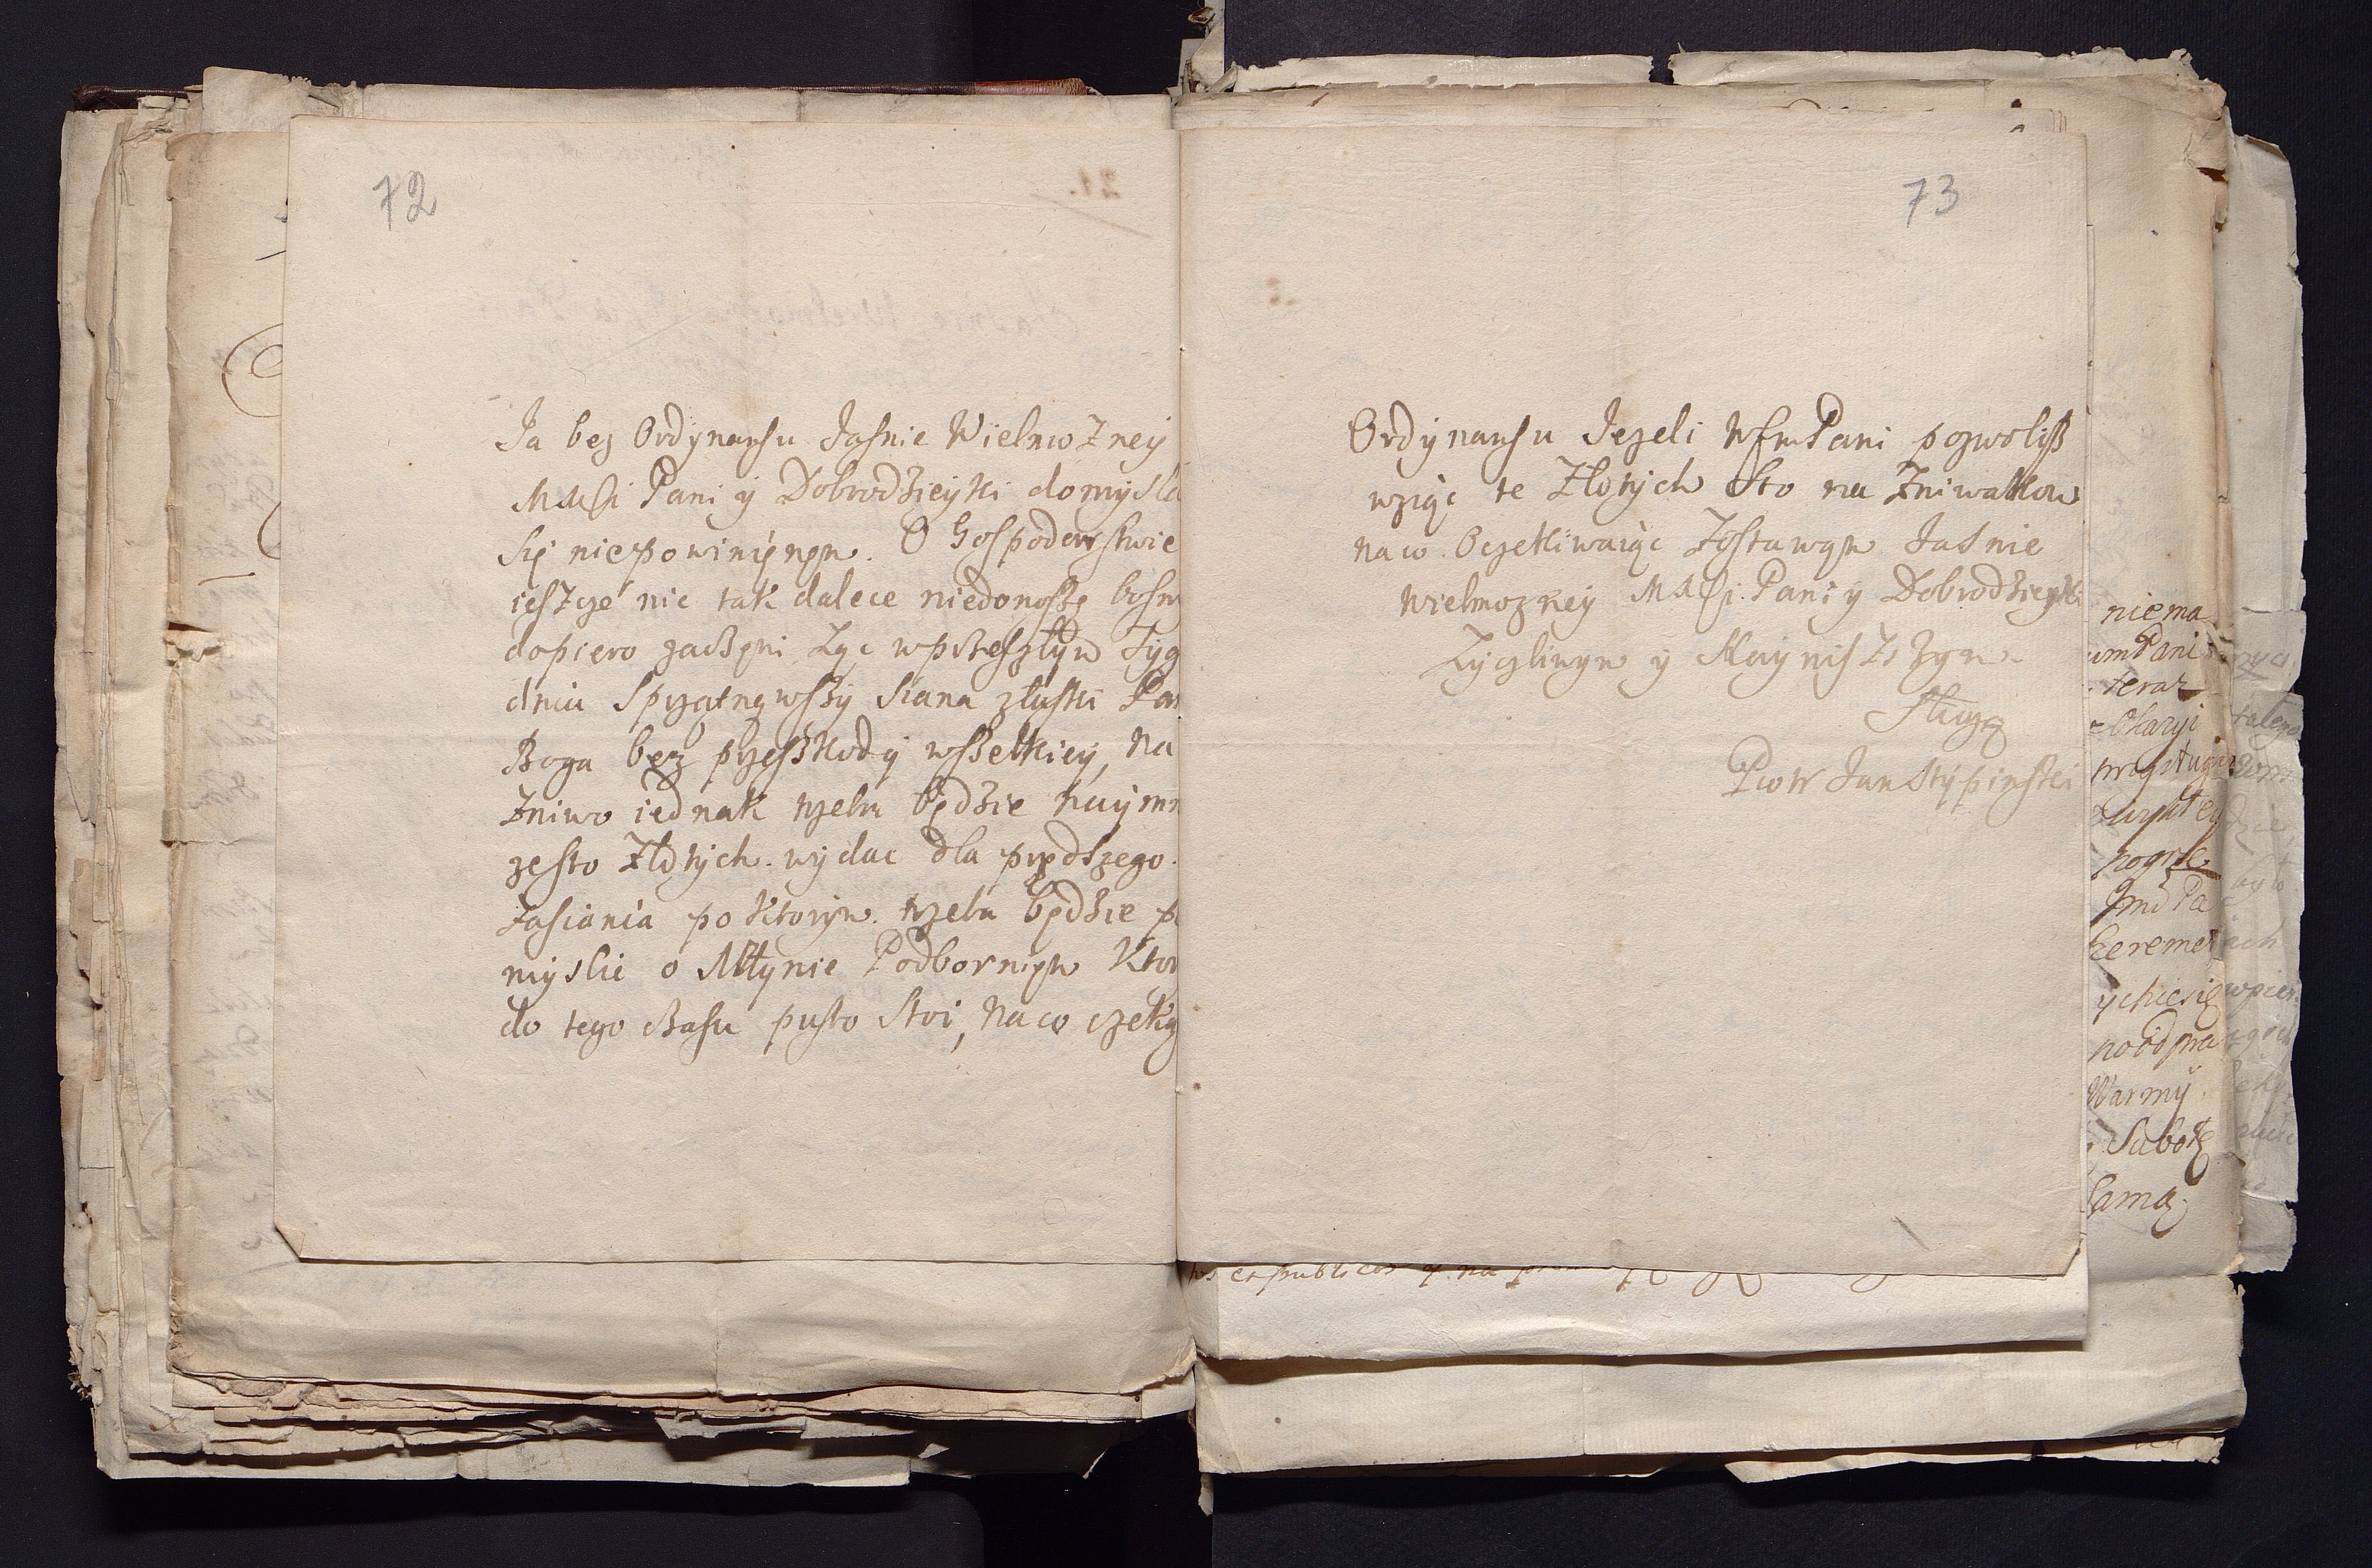 72
Ja bez Ordynansu Jasnie Wielmozney
MMCi Pani y Dobrodzieyki domysla
Się niepowinięnem. O Gospodarstwie
ieszcze nic tak dalece niedonoszę bosm
dopiero zaczęni Ząc wprzeszlym Tyg
dniu Sprzątnąwszy Siana złaski Pan
Boga bez przeszkody wszelkiey, na
Zniwo iednak trzeba będzie naymn
zesto Złotych wydac dla prędszego
Zasiania po ktorym trzeba będzie p
myslic o Młynie Podbornym Ktor
do tego Czasu pusto Stoi, naco czeka
73
Ordynansu Jezeli WMPani pozwolisz
wziąc te Złotych Sto na Zniwa
naco Oczekiwaiąc Zostawam Jasnie
Wielmozney MMCi Pani y Dobrodzieyki
Zyczliwym y Nayniszszym
Sługą
Piotr Jan Stypinski
niema
umPani
teraz
Okazyi
Imc Pa
ychcesię
Warmy
Subotę
Samą